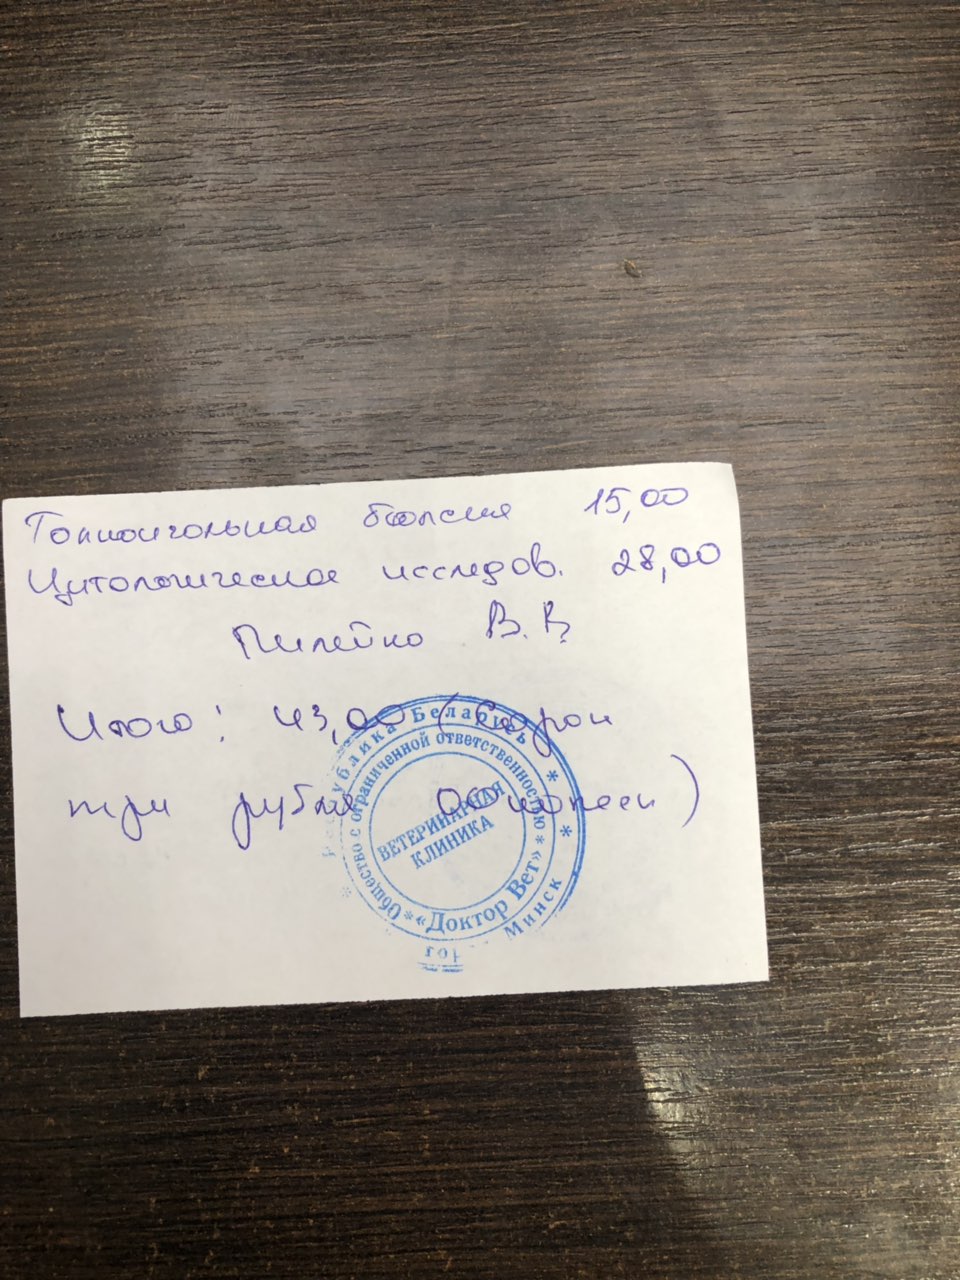 Тонкоигольная биопсия 15,00
Цитологическое исследов. 28,00
Пилейко В.В
Итого: 43,00 (сорок
три рубля 00 копеек)
Республика Беларусь * *
Общество с ограниченной ответственностью
* «Доктор Вет» *
ВЕТЕРИНАРНАЯ
КЛИНИКА
Минск